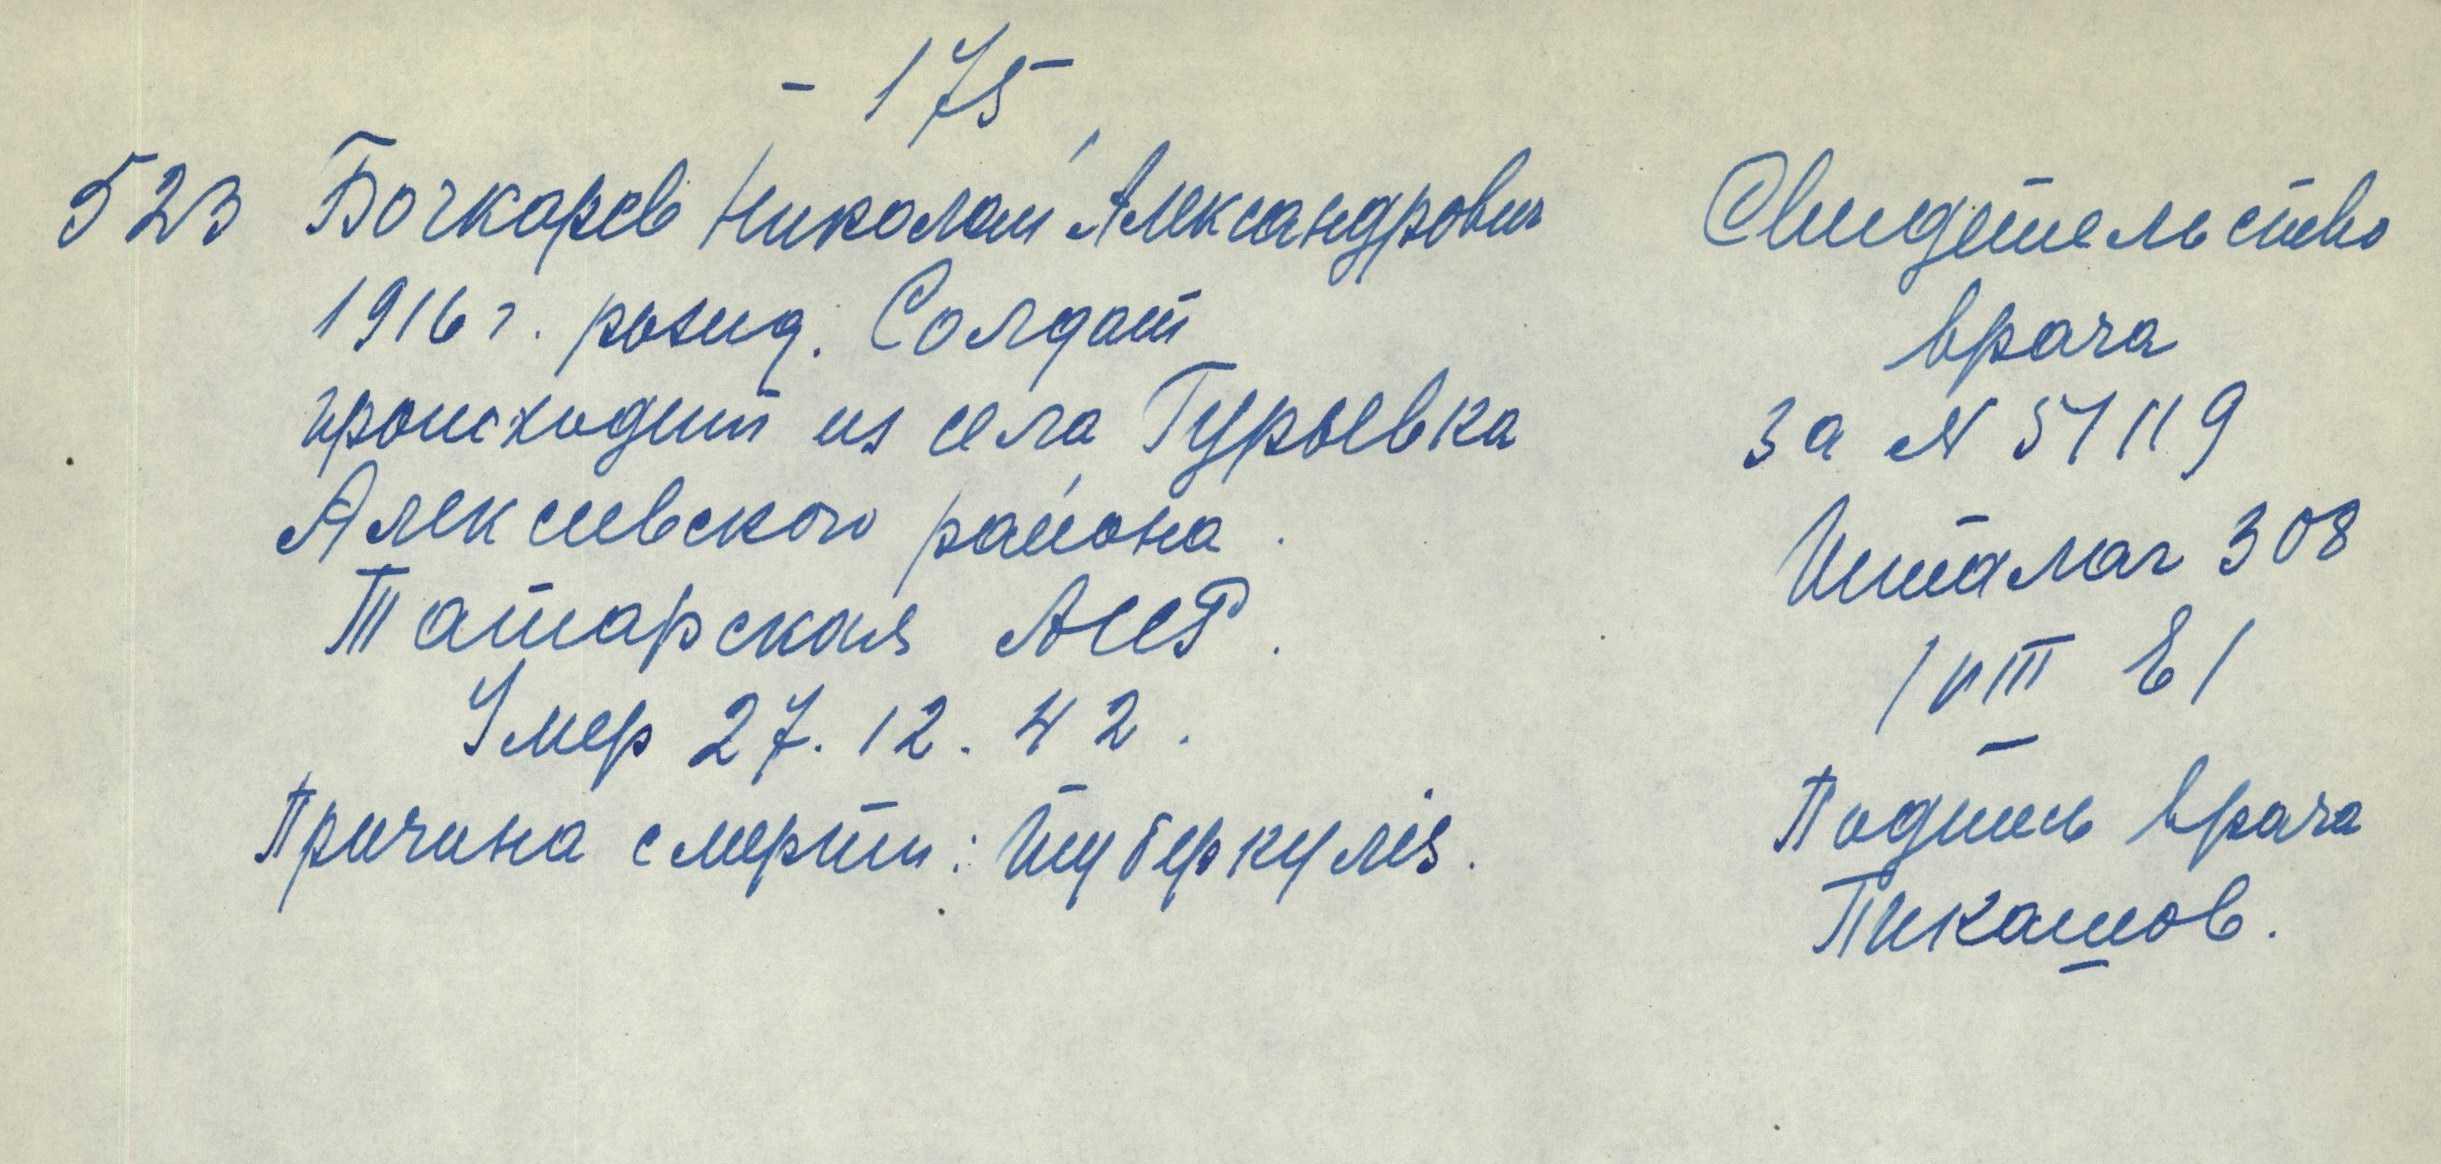 - 175 -
523 Бочкарев Николай Александрович
1916 г. рожд. Солдат
происходит из села Гурьевка
Алексеевского района.
Татарская АССР.
Умер 27.12.42.
Причина смерти: туберкулёз.
Свидетельство
врача
за N 57119
Шталаг 308
/VIII E/
Подпись врача
Пикашов.